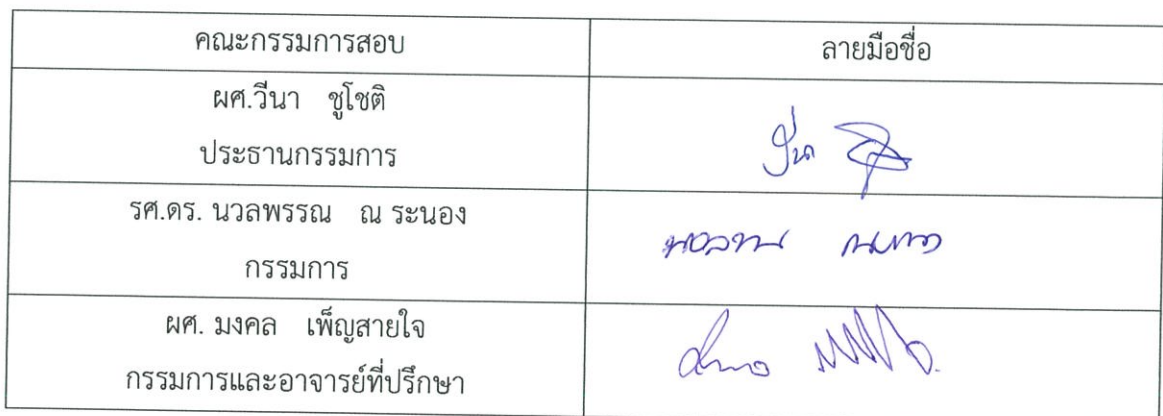 คณะกรรมการสอบ ลายมือชื่อ
ผศ.วีนา ชูโชติ
ประธานกรรมการ
รศ.ดร. นวลพรรณ ณ ระนอง
กรรมการ
ผศ. มงคล เพ็ญสายใจ
กรรมการและอาจารย์ที่ปรึกษา